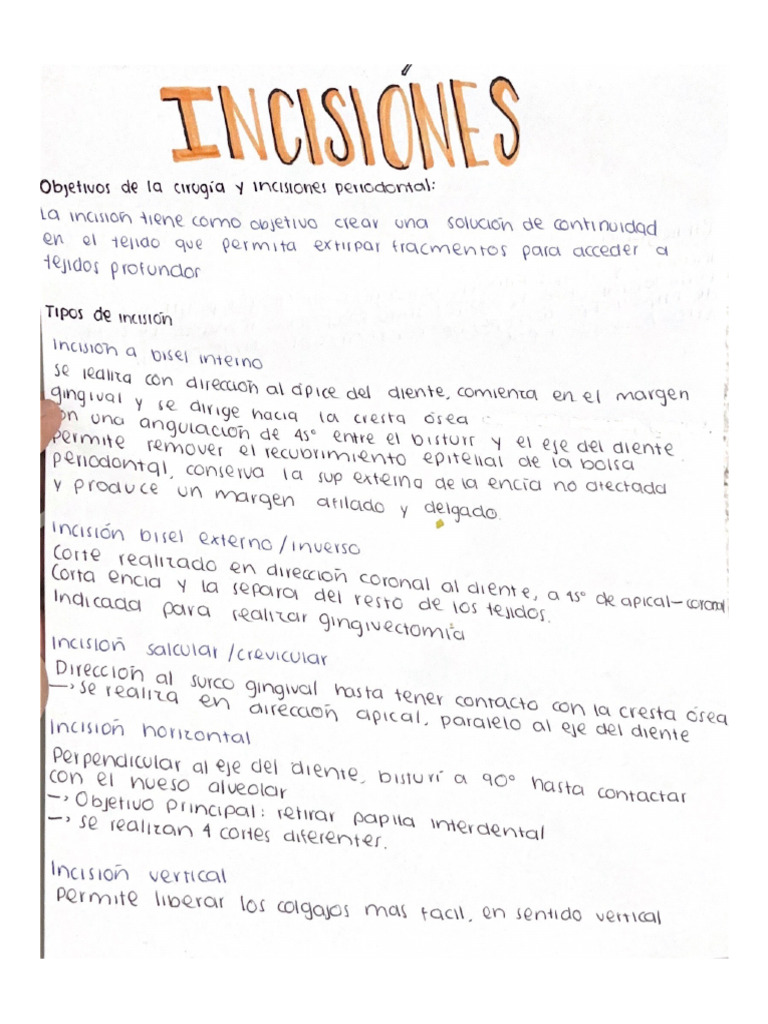 INCISIÓNES
Objetivos de la cirugía y incisiones periodontal:
La incisión tiene como objetivo crear una solución de continuidad
en el tejido que permita extirpar fracmentos para acceder a
tejidos profundos
Tipos de incisión
Incisión a bisel interno
se realiza con dirección al ápice del diente, comienza en el margen
gingival y se dirige hacia la cresta ósea
con una angulación de 45° entre el bisturí y el eje del diente
permite remover el recubrimiento epitelial de la bolsa
periodontal, conserva la sup externa de la encía no afectada
y produce un margen afilado y delgado.
Incisión bisel externo/inverso
Corte realizado en dirección coronal al diente, a 45° de apical-coronal
Corta encia y la separa del resto de los tejidos.
Indicada para realizar gingivectomía
Incisión salcular/crevicular
Dirección al surco gingival hasta tener contacto con la cresta ósea
→ se realiza en dirección apical, paralelo al eje del diente
Incisión horizontal
Perpendicular al eje del diente, bisturí a 90° hasta contactar
con el hueso alveolar
→ Objetivo principal: retirar papila interdental
→ se realizan 4 cortes diferentes.
Incisión vertical
Permite liberar los colgajos mas facil, en sentido vertical